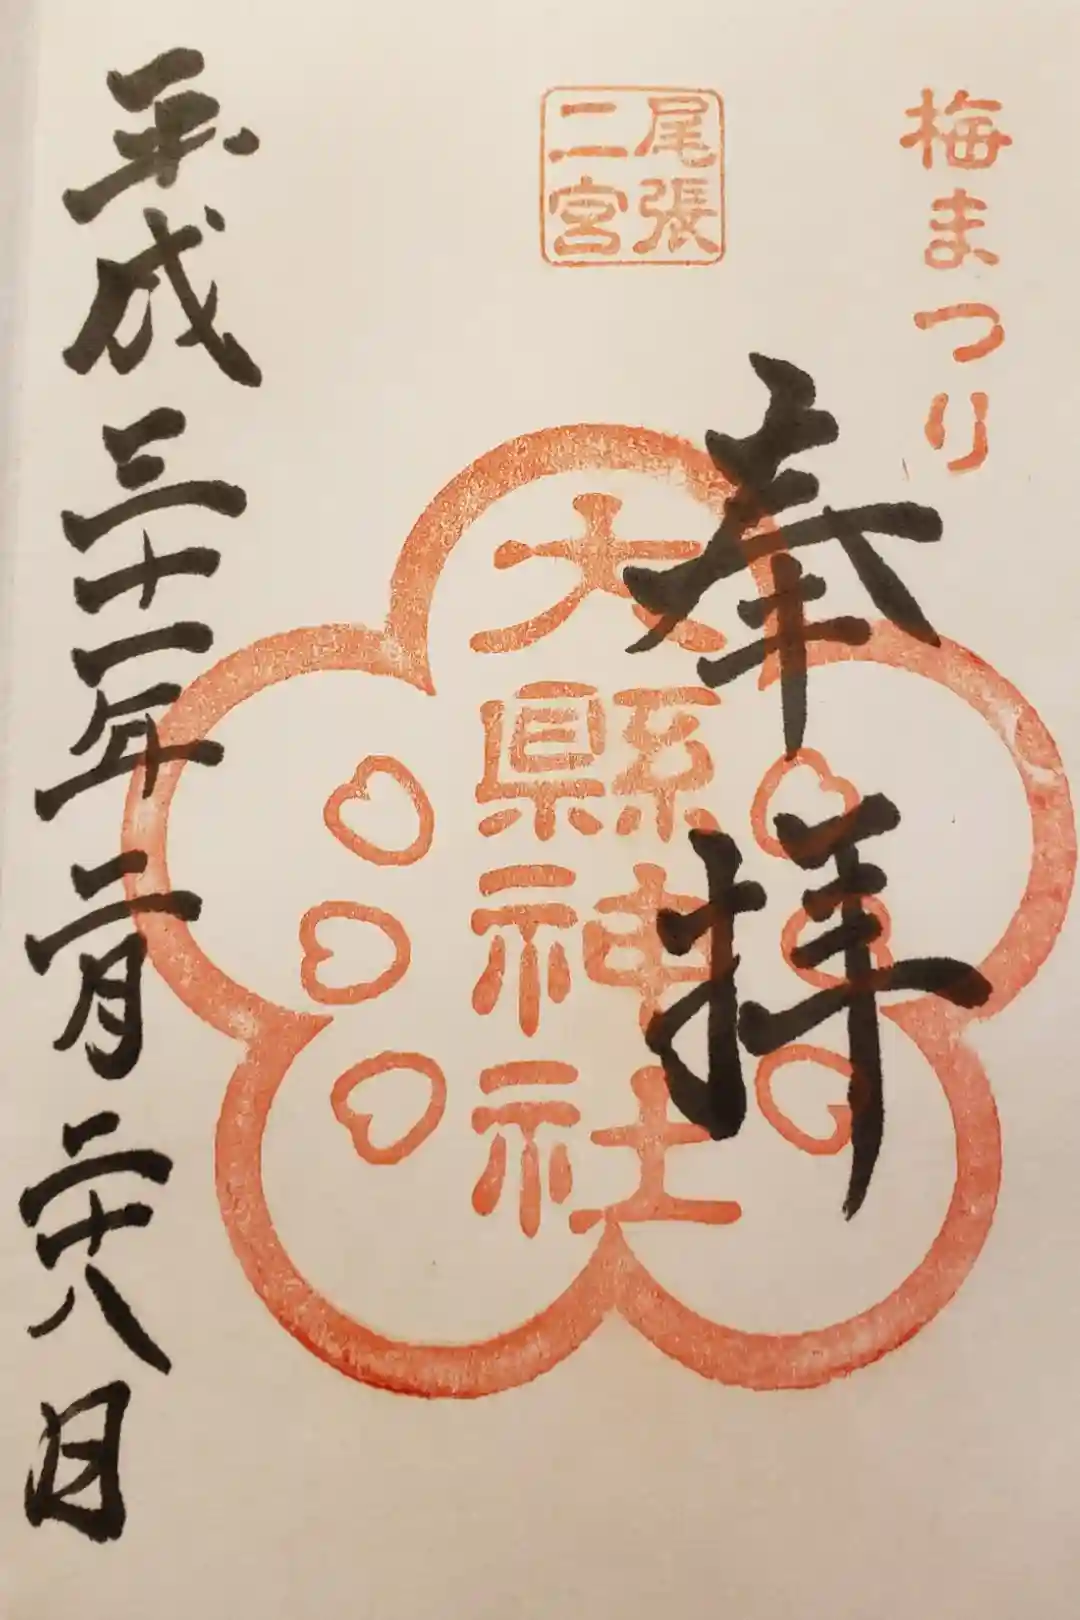 梅まつり
奉拝
尾張
二宮
大
縣
神社
平成三十一年二月二十八日